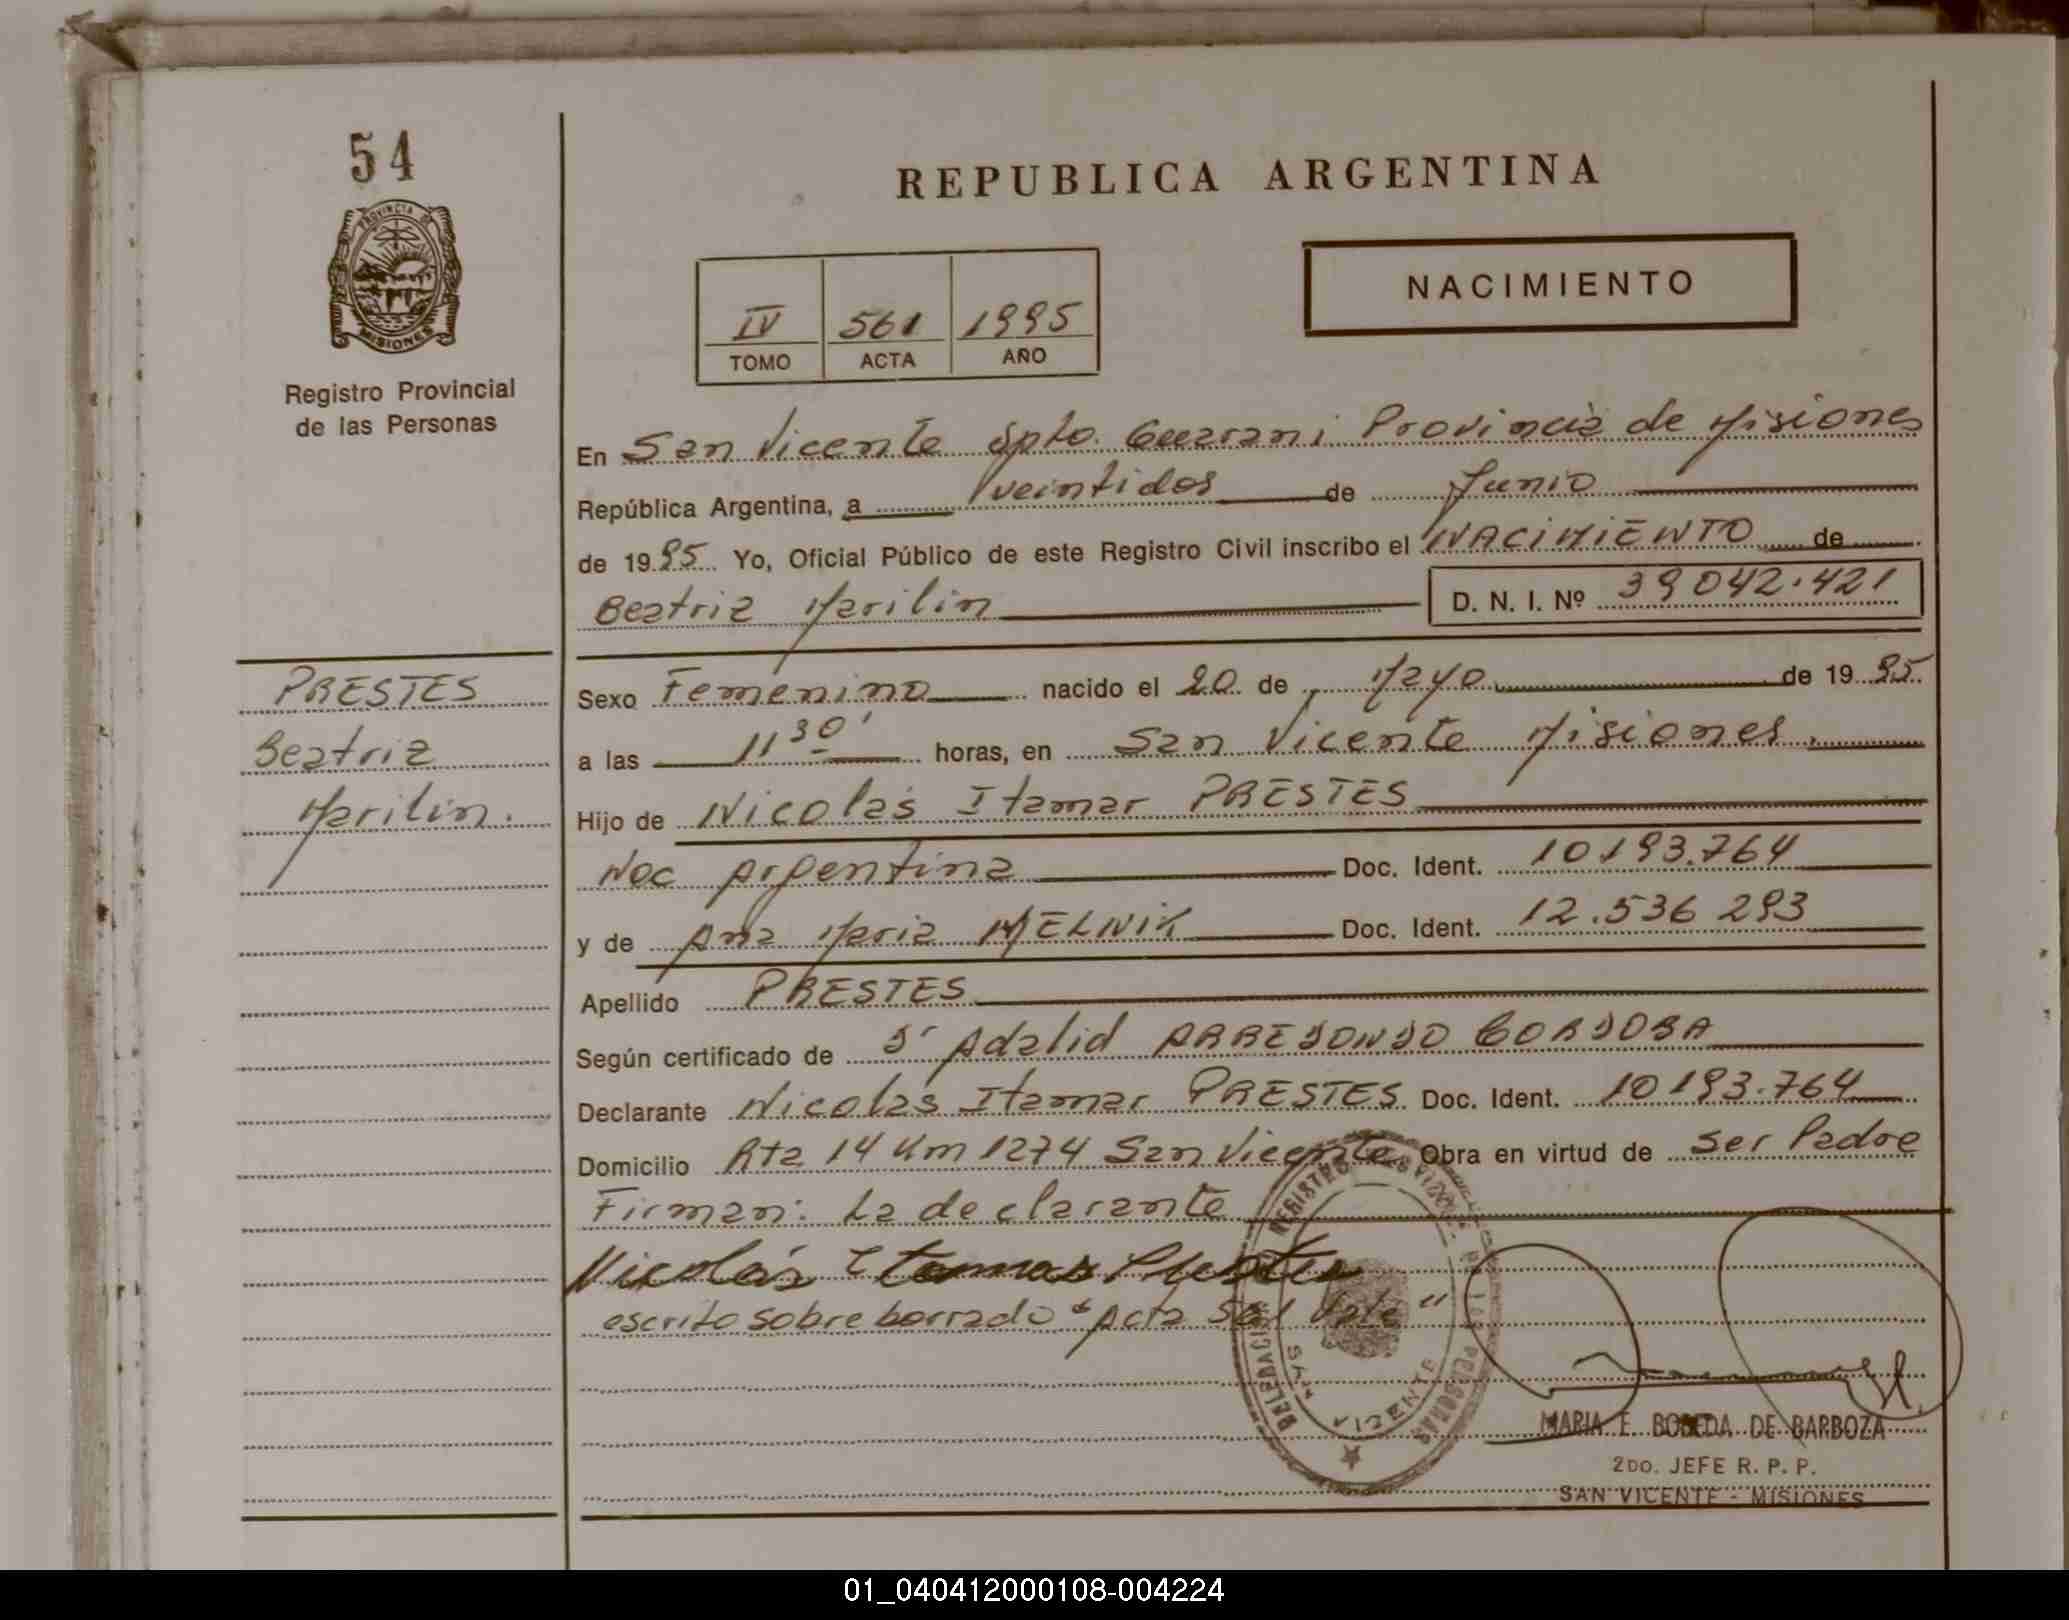 54
PROVINCIA DE
MISIONES
Registro Provincial
de las Personas
REPUBLICA ARGENTINA
NACIMIENTO
IV 561 1995
TOMO ACTA AÑO
En San Vicente Dpto. Guarani Provincia de Misiones
República Argentina, a veintidos de Junio
de 1995 Yo, Oficial Público de este Registro Civil inscribo el NACIMIENTO de
Beatriz Marilin D. N. I. Nº 39042.421
PRESTES
Beatriz
Marilin.
Sexo Femenino nacido el 20 de Mayo de 1995.
a las 11 30' horas, en San Vicente Misiones.
Hijo de Nicolás Itamar PRESTES
Nac Argentina Doc. Ident. 10193.764
y de Ana Maria MELNIK Doc. Ident. 12.536 293
Apellido PRESTES
Según certificado de Dr Adalid ARREDONDO CORDOBA
Declarante Nicolas Itamar PRESTES Doc. Ident. 10193.764
Domicilio Rta 14 Km 1274 San Vicente Obra en virtud de ser Padre
Firman: La declarante
Nicolás Itamar Prestes
escrito sobre borrado "Acta 561 Vale"
DELEGACION REGISTRO PROVINCIAL DE LAS PERSONAS
SAN VICENTE
MARIA E. BOBEDA DE BARBOZA
2DO. JEFE R. P. P.
SAN VICENTE - MISIONES
01_040412000108-004224